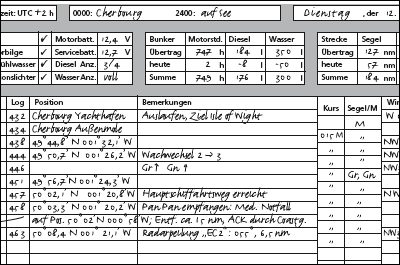 zeit: UTC + 2 h 0000: Cherbourg 2400: auf See Dienstag , der 12.
✓ Motorbatt. 12,4 V Bunker Motorstd. Diesel Wasser Strecke Segel
rbilge ✓ Servicebatt. 12,7 V Übertrag 747 h 184 l 350 l Übertrag 127 nm
ühlwasser ✓ Diesel Anz. 3/4 heute 2 h -8 l -50 l heute 57 nm
onslichter ✓ Wasser Anz. voll Summe 749 h 176 l 300 l Summe 184 nm
Log Position Bemerkungen Kurs Segel/M Win
432 Cherbourg Yachthafen Auslaufen, Ziel Isle of Wight
434 Cherbourg Außenmole M
438 49° 44,8' N 001° 32,1' W 015 M " NW
444 49° 50,7' N 001° 26,2' W Wachwechsel 2 → 3 " "
446 Gr↑ Gn↑ " "
451 49° 56,7' N 001° 24,3' W " Gr, Gn
457 50° 02,1' N 001° 20,8' W Hauptschiffahrtsweg erreicht " " NW
458 50° 03,3' N 001° 20,2' W Pan Pan empfangen: Med. Notfall " "
auf Pos. 50° 02' N 000° 58' W; Entf. ca. 15 nm, ACK durch Coastg. " "
463 50° 08,4 N 001° 21,1' W Radarpeilung „EC2": 055°, 6,5 nm " " NW